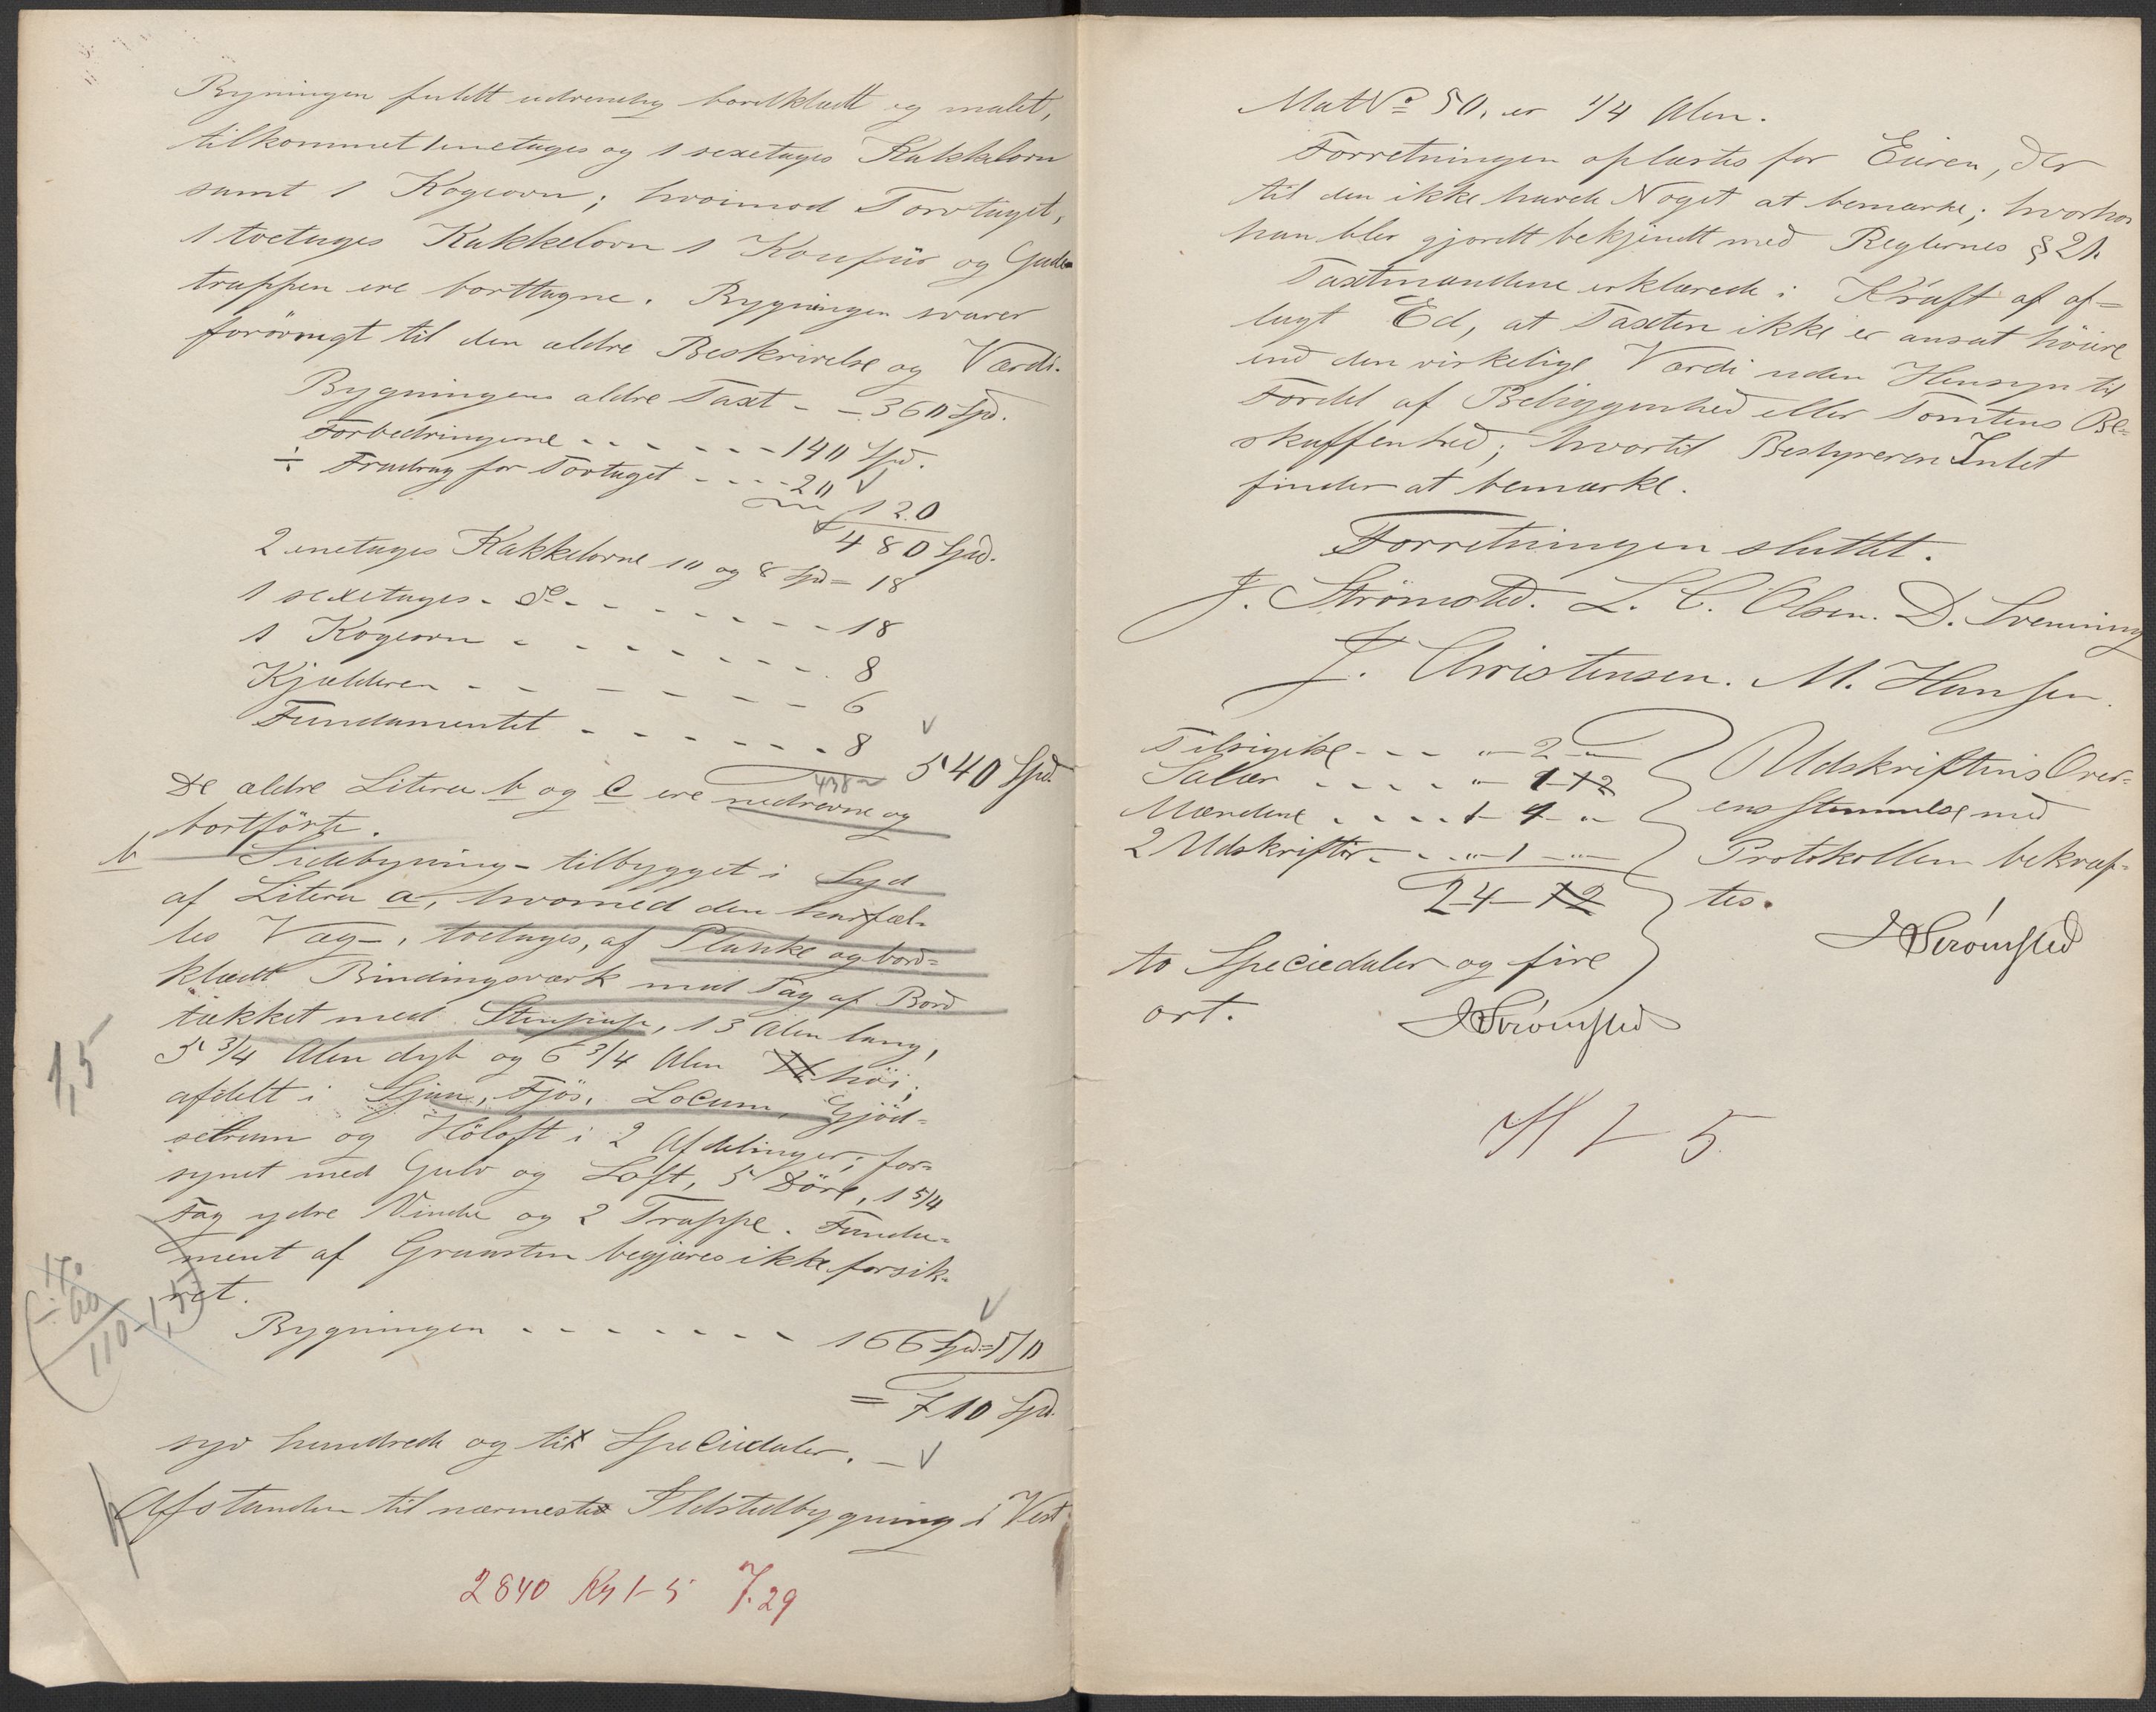 Bygningen fuldt udvendig bordklædt og malet,
tilkommet 1 enetages og 1 sexetages Kakkelovn
samt 1 Kogeovn; hvorimod Torvtaget,
1 toetages Kakkelovn 1 Komfür og Gade-
trappen ere borttagne. Bygningen svarer
forövrigt til den ældre Beskrivelse og Værdi.
Bygningens ældre Taxt - - 360 Spd.
Forbedringerne - - - - - - 140 Spd.
÷ Fradrag for Torvtaget - - - - 20
120
480 Spd.
2 enetages Kakkelovne 10 og 8 Spd = 18
1 sexetages - do - - - - - - - 18
1 Kogeovn - - - - - - - - 8
Kjælderen - - - - - - - 6
Fundamentet - - - - - - - 8
540 Spd
De ældre Litera b og c ere nedrevne og
bortförte.
b Sidebygning - tilbygget i Syd
af Litera a, hvormed den har fæl-
les Væg -, toetages, af Planke og bord-
klædt Bindingsværk med Tag af Bord
tækket med Stenpap, 13 Alen lang,
5 3/4 Alen dyb og 6 3/4 Alen höi;
1,5
afdelt i Sjaa, Fjös, Locum, Gjöd-
selrum og Höloft i 2 Afdelinger; for-
synet med Gulv og Loft, 5 Döre, 1 5/4
Fag ydre Vindu og 2 Trappe. Funda-
ment af Graasten begjæres ikke forsik-
ret.
170
÷ 60
110 - 1,5
Bygningen - - - - - - - 166 Spd = 170
= 710 Spd.
syv hundrede og ti Speciedaler. -
Afstanden til nærmeste Ildstedbygning i Vest
2840 Kr 1-5 7.29
Mat No 50, er 1/4 Alen.
Forretningen oplæstes for Eieren, der
til den ikke havde Noget at bemærke; hvorhos
han blev gjordt bekjendt med Reglernes § 21.
Taxtmændene erklærede i Kraft af af-
lagt Ed, at Taxten ikke er ansat höiere
end den virkelige Værdi uden Hensyn til
Fordel af Beliggenhed eller Tomtens Be-
skaffenhed; hvortil Bestyreren Intet
finder at bemærke.
Forretningen sluttet.
J. Strömsted. L. C. Olsen. D. Svenning
J. Christensen. M. Hansen.
Tilsigelse - - - " - 2 - "
Salær - - - - - " - 1 - 12
Mændene - - - - 1 - 4 - "
2 Udskrifter - - - " - 1 - "
2 - 4 - 12
Udskriftens Over-
ensstemmelse med
Protokollen bekræf-
tes.
JStrömsted
to Speciedaler og fire
ort.
JStrömsted
Kl 1 - 5